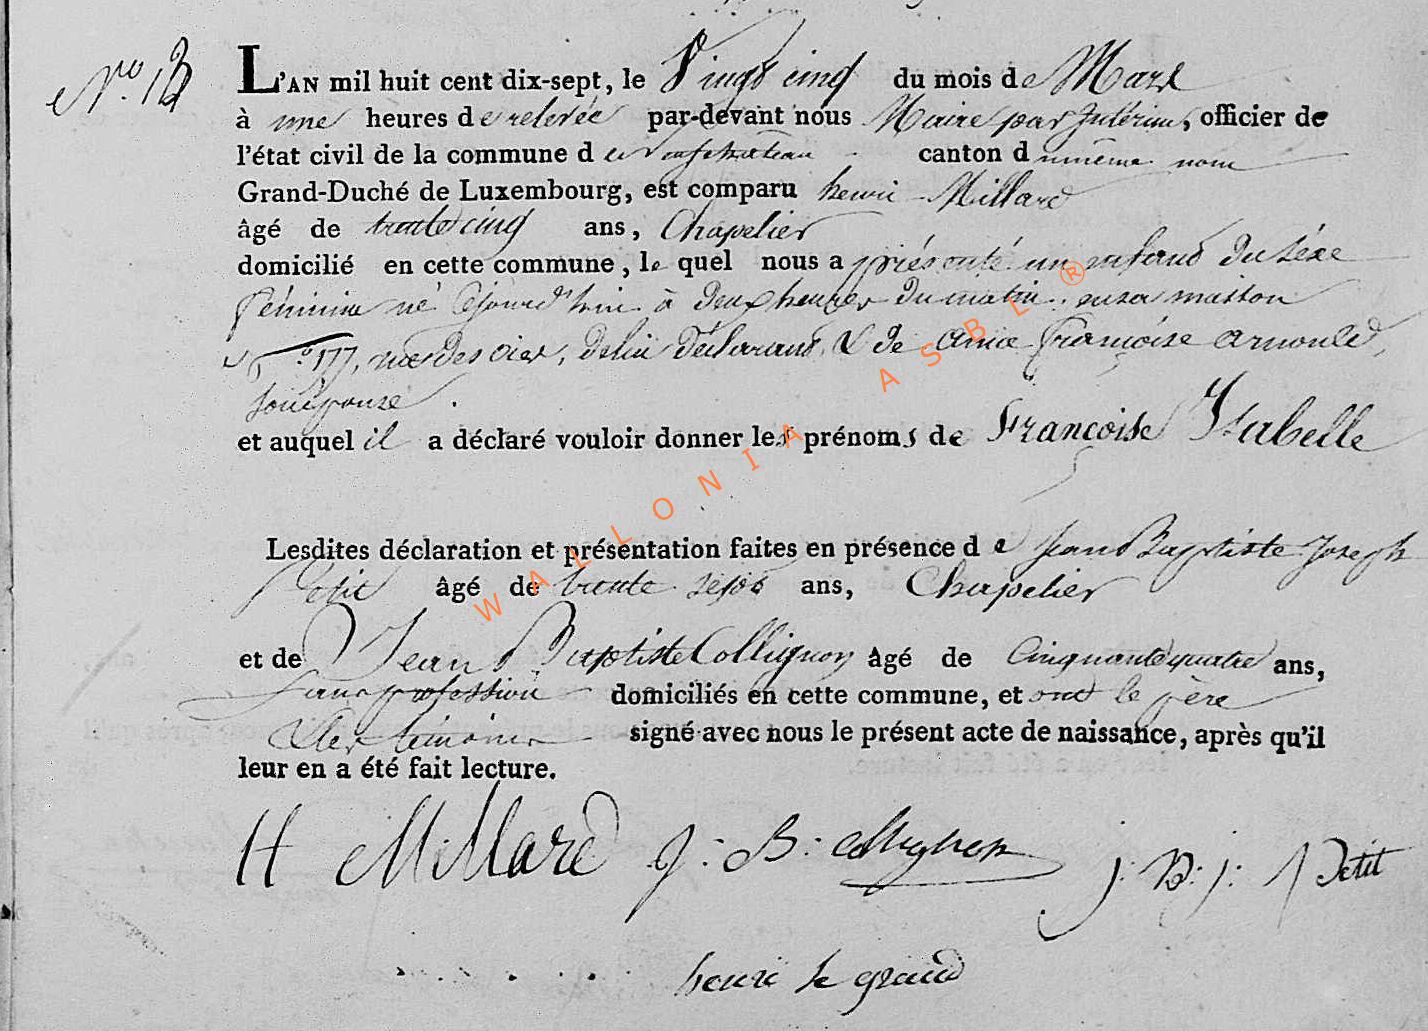 N.o 13
L'AN mil huit cent dix-sept, le Vingt cinq du mois de Mars
à une heures de relevée par-devant nous Maire par Intérim, officier de
l'état civil de la commune de Neufchateau canton du même nom
Grand-Duché de Luxembourg, est comparu henri Millard
âgé de trente cinq ans, Chapelier
domicilié en cette commune, le quel nous a présenté un enfant du séxe
féminin né cejourd'huit à deux heures du matin, en sa maison
N.o 177, de lui Déclarant, & de Anne Françoise arnould,
son épouse.
et auquel il a déclaré vouloir donner les prénoms de Françoise Isabelle
Lesdites déclaration et présentation faites en présence de Jean Baptiste Joseph
Petit âgé de trente sept ans, Chapelier
et de Jean Baptiste Collignon âgé de Cinquante quatre ans,
sans profession domiciliés en cette commune, et ont le père
& les témoins signé avec nous le présent acte de naissance, après qu'il
leur en a été fait lecture.
H Millard J: B: Collignon j: B: j: Petit
henri le grand
WALLONIA ASBL ®